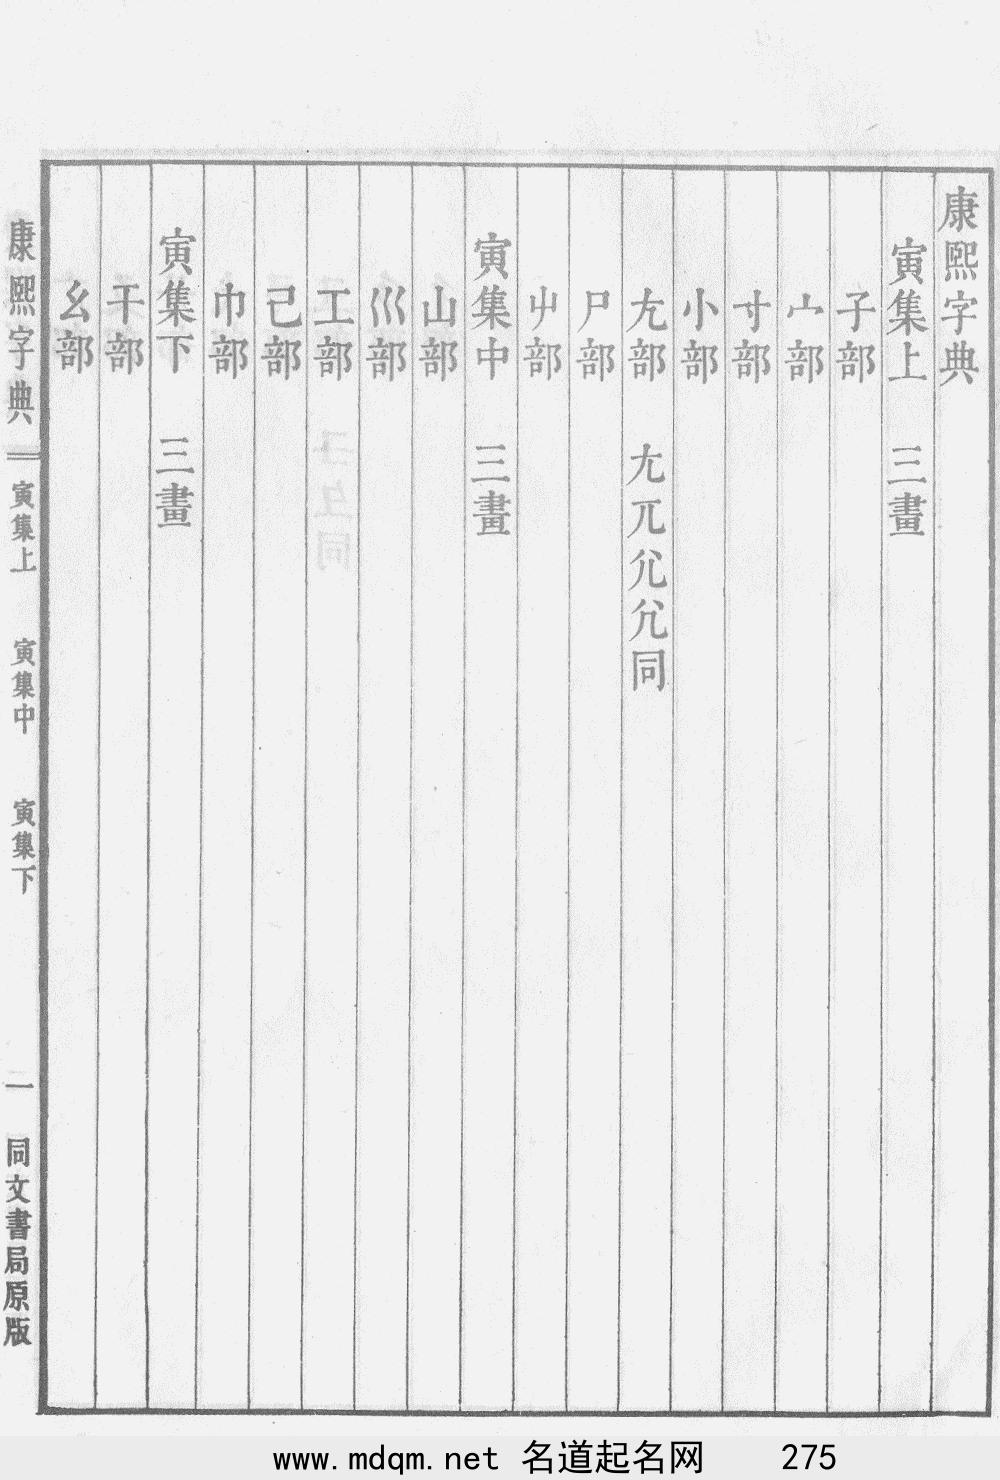 康熙字典
寅集上 三畫
子部
宀部
寸部
小部
尢部 尢兀尣允同
尸部
屮部
寅集中 三畫
山部
巛部
工部
己部
巾部
寅集下 三畫
干部
幺部
康熙字典 寅集上 寅集中 寅集下 一 同文書局原版
www.mdqm.net 名道起名网 275